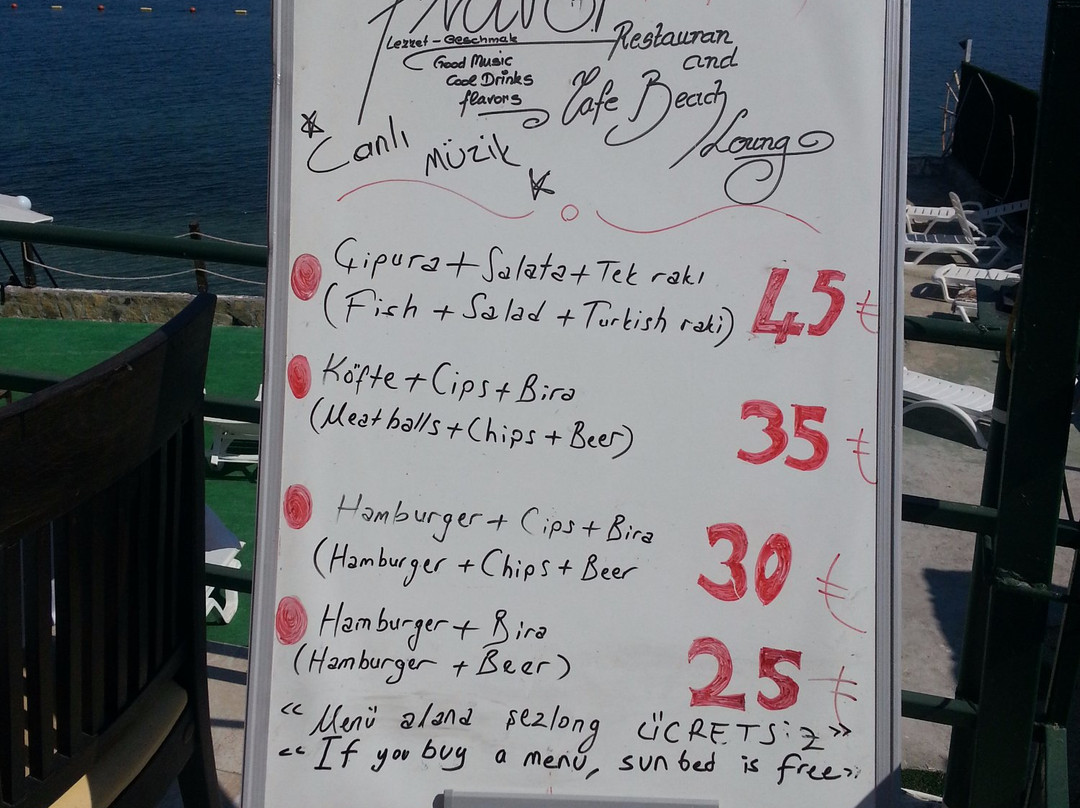 Flavor
Lezzet-Geschmak
Good Music
Cool Drinks
flavors
Restauran
and
Cafe Beach
Loung
Canlı
müzik
Çipura + Salata + Tek rakı
(Fish + Salad + Turkish raki)
45 ₺
Köfte + Cips + Bira
(Meatballs + Chips + Beer)
35 ₺
Hamburger + Cips + Bira
(Hamburger + Chips + Beer
30 ₺
Hamburger + Bira
(Hamburger + Beer)
25 ₺
"Menü alana şezlong ÜCRETSiz"
"If you buy a menu, sun bed is free"